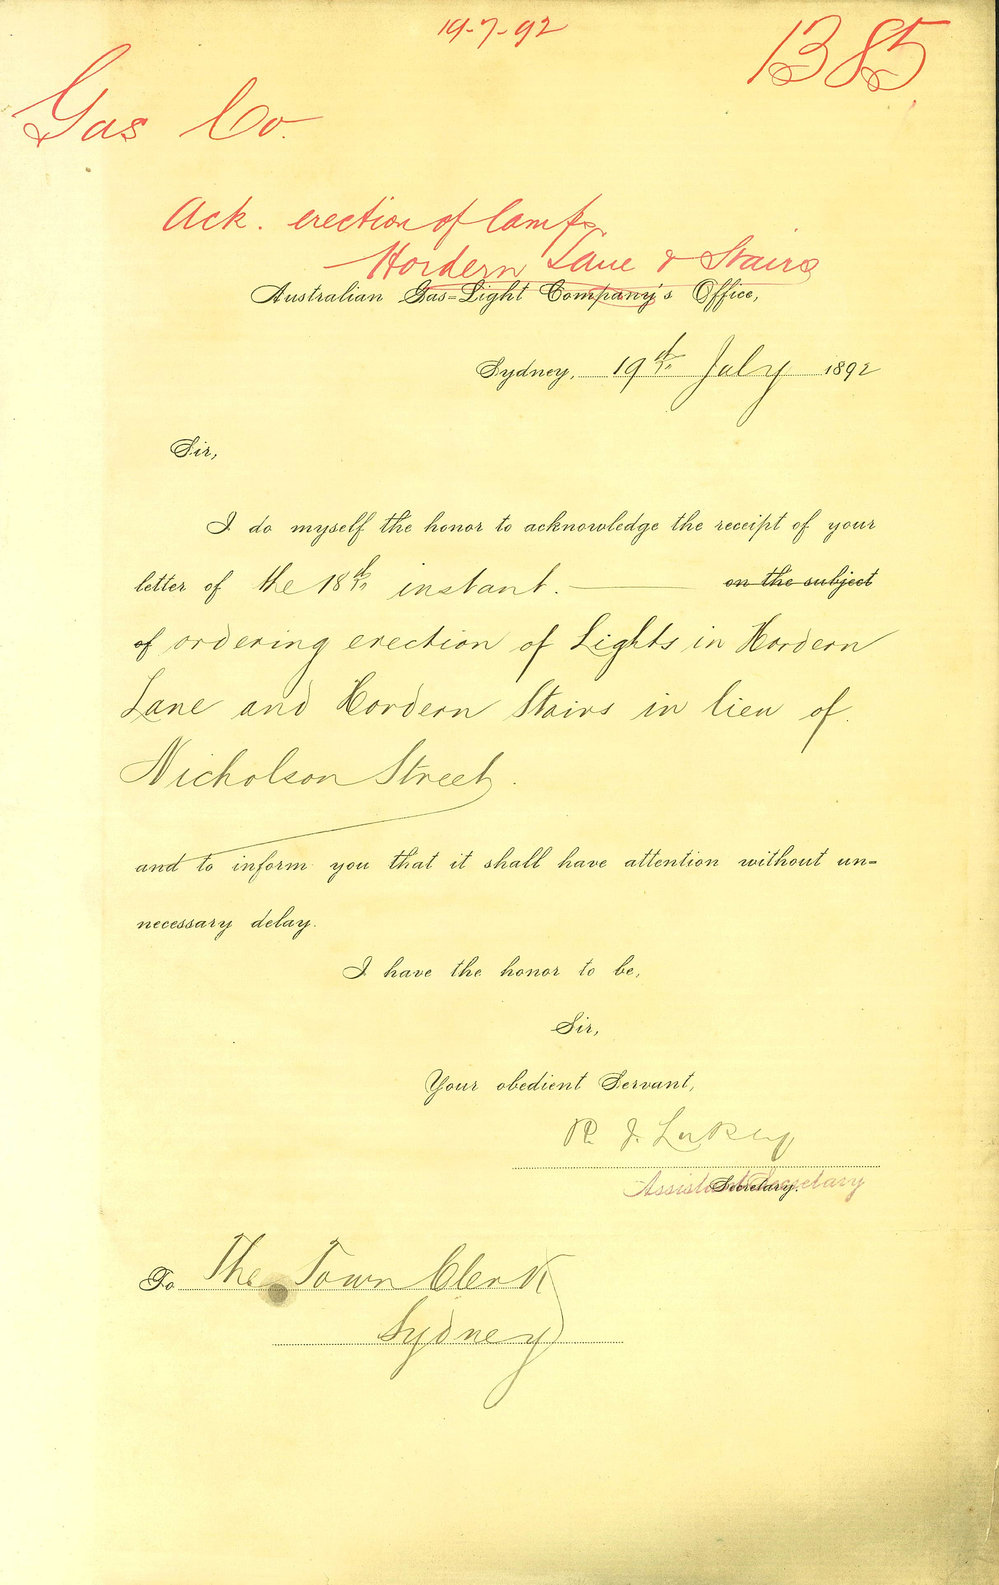 19-7-92
1385
Gas Co.
Ack. erection of lamps
Hordern Lane & Stairs
Australian Gas=Light Company's Office,
Sydney, 19th July 1892
Sir,
I do myself the honor to acknowledge the receipt of your
letter of the 18th instant. — on the subject
of ordering erection of Lights in Hordern
Lane and Hordern Stairs in lieu of
Nicholson Street.
and to inform you that it shall have attention without un=
necessary delay.
I have the honor to be,
Sir,
Your obedient Servant,
R. J.
Assistant Secretary
Secretary.
To The Town Clerk
Sydney